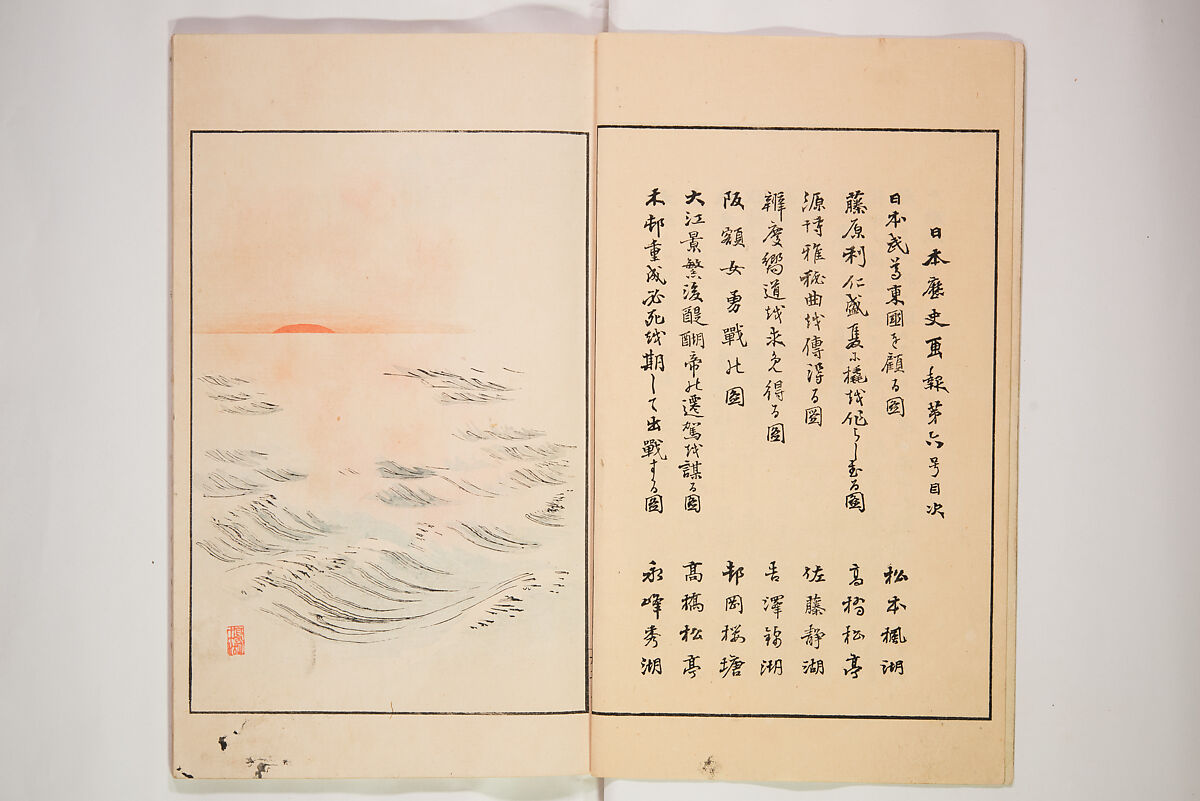 日本歴史画報第六号目次
日本武尊東國を顧る図 松本楓湖
藤原利仁盛夏に橇を作らしむる図 高橋松亭
源博雅秘曲を傳得る図 佐藤靜湖
辨慶嚮道を求め得る図 吉澤錦湖
阪額女勇戰の図 邨岡桜塘
大江景繁後醍醐帝の遷駕を謀る図 高橋松亭
木邨重成必死を期して出戰する図 永峰秀湖